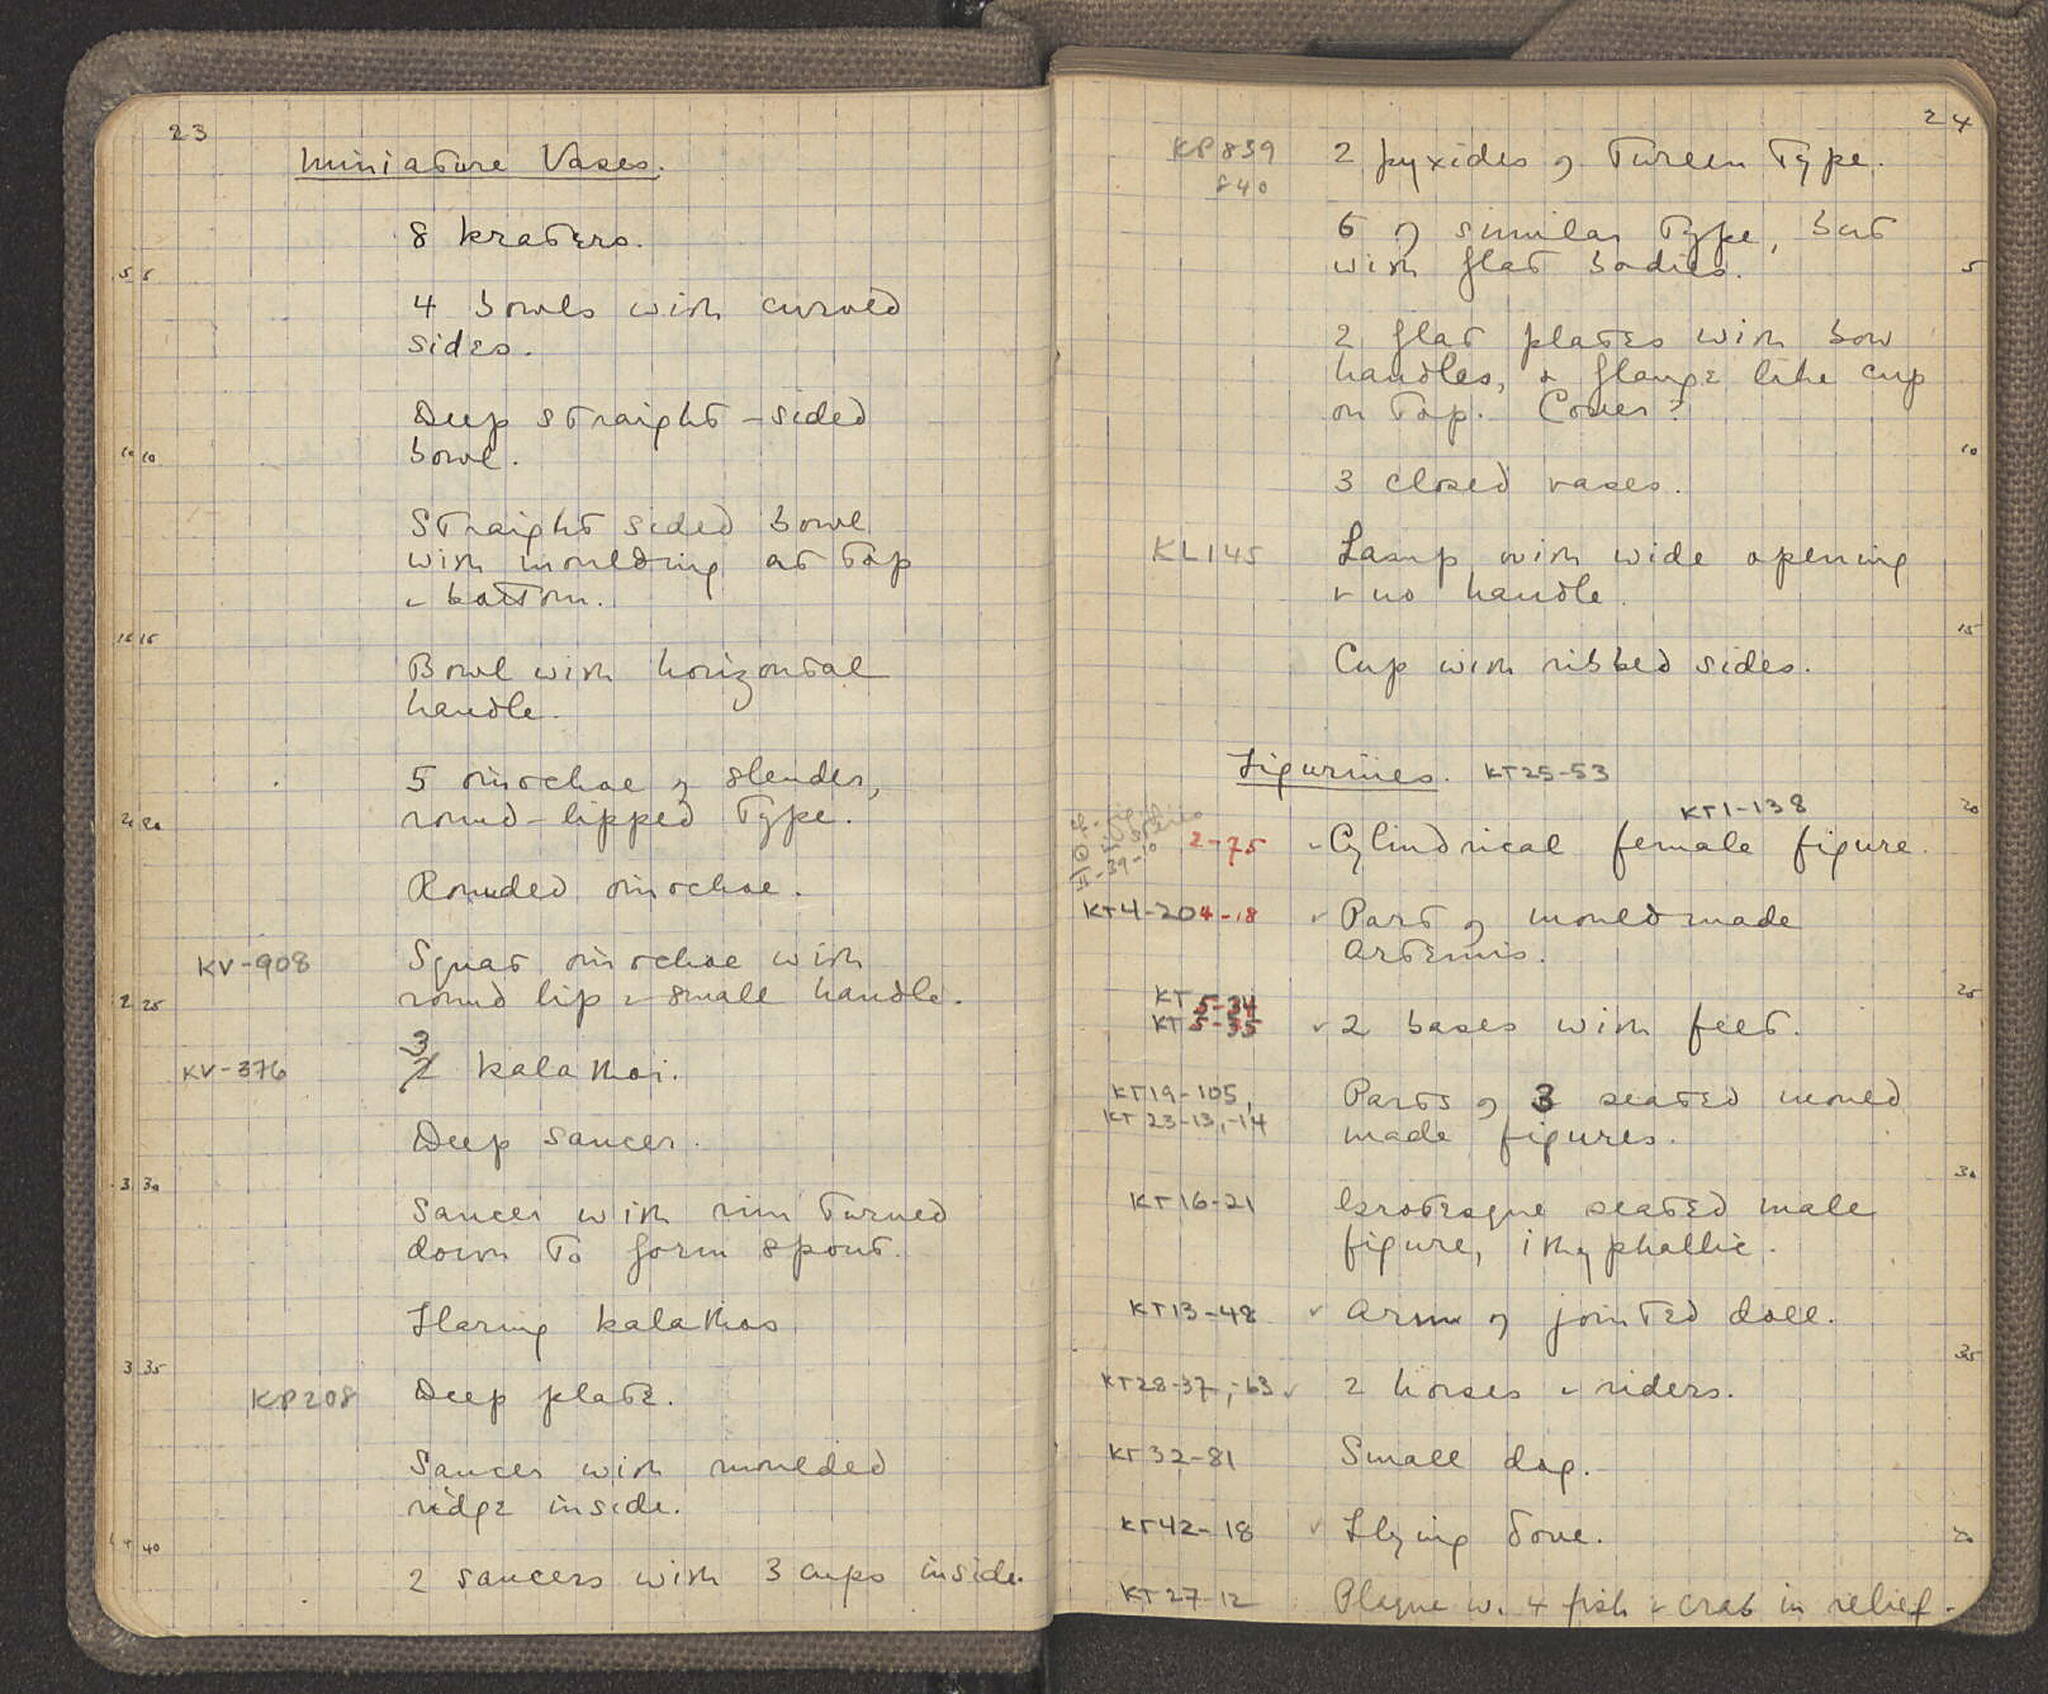 23
Miniature Vases.
8 kraters.
5 5
4 bowls with curved
sides.
Deep straight-sided
10 10 bowl.
Straight sided bowl
with moulding at top
& bottom.
15 15
Bowl with horizontal
handle.
5 oinochoe of slender,
20 round-lipped type.
Rounded oinochoe.
KV-908 Squat oinochoe with
25 round lip & small handle.
3
KV-376 2 kalathoi.
Deep saucer.
30
Saucer with rim turned
down to form spout.
Flaring kalathos
35
KP208 Deep plate.
Saucer with moulded
ridge inside.
40
2 saucers with 3 cups inside.
24
KP839 2 pyxides of tureen type.
840
6 of similar type, but
with flat bodies. 5
2 flat plates with bow
handles, & flange like cup
on top. Cover?
10
3 closed vases.
KL145 Lamp with wide opening
& no handle.
15
Cup with ribbed sides.
Figurines. KT25-53
KT1-138 20
2-75 Cylindrical female figure.
-39-10
KT4-204-18 Part of mouldmade
Artemis.
25
KT 5-34
KT 5-35 2 bases with feet.
KT19-105, Parts of 3 seated mould
KT 23-13, -14 made figures.
30
KT16-21 Grotesque seated male
figure, ithyphallic.
KT13-48 Arm of jointed doll.
35
KT28-37, -63 2 horses & riders.
KT32-81 Small dog.
KT42-18 Flying dove.
KT27-12 Plaque w. 4 fish & crab in relief.